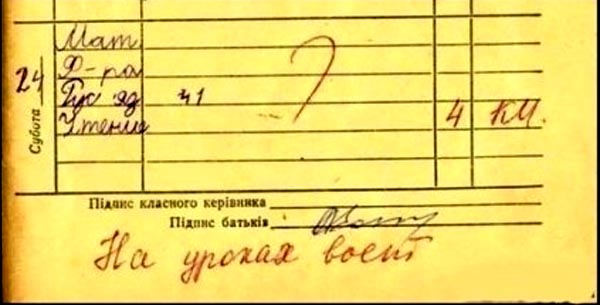 Мат
24 Ф-ра
Рус яз 41
Субота
Чтение 4 КМ.
Підпис класного керівника
Підпис батьків
На уроках воет